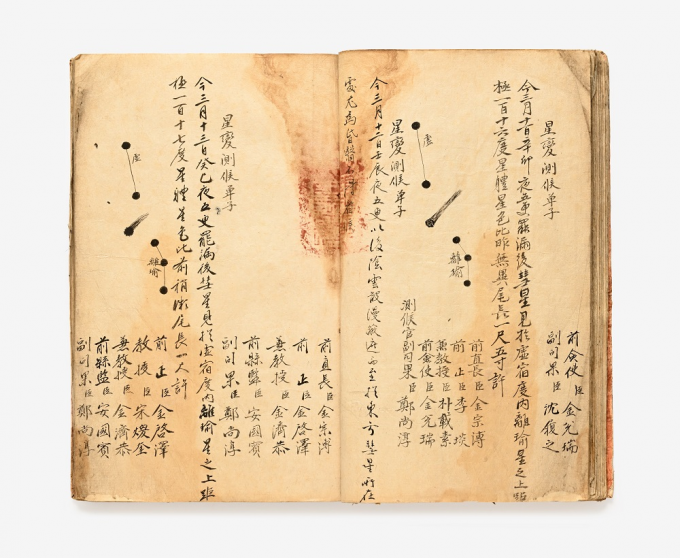 前僉使臣金允瑞
副司果臣沈之
星變測候單子
今三月十一日辛卯夜五更罷漏後彗星見於虛宿度內離瑜星之上距
極一百十六度星體星色比昨無異尾長一尺五寸許
前直長臣金宗溥
前正臣李埮
兼教授臣朴載素
前僉使臣金允瑞
測候官副司果臣鄭尚淳
虛
離瑜
星變測候單子
今三月十二日壬辰夜五更以後陰雲而至於東方彗星所在
處尤為昏翳不得
前直長臣金宗溥
前正臣金啓澤
兼教授臣金濟恭
前縣監臣安國賓
副司果臣鄭尚淳
星變測候單子
今三月十三日癸巳夜五更罷漏後彗星見於虛宿度內離瑜星之上距
極一百十七度星體星色比前稍微尾長一尺許
虛
離瑜
前正臣金啓澤
教授臣宋
兼教授臣金濟恭
前縣監臣安國賓
副司果臣鄭尚淳